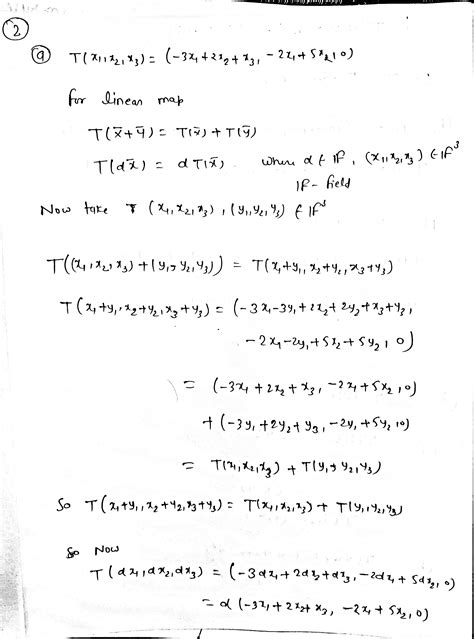 2
a T(x₁, x₂, x₃) = (-3x₁ + 2x₂ + x₃, -2x₁ + 5x₂, 0)
for linear map
T(x̄ + ȳ) = T(x̄) + T(ȳ)
T(αx̄) = αT(x̄). where α ∈ IF, (x₁, x₂, x₃) ∈ IF³
IF - field
Now take (x₁, x₂, x₃), (y₁, y₂, y₃) ∈ IF³
T((x₁, x₂, x₃) + (y₁, y₂, y₃)) = T(x₁+y₁, x₂+y₂, x₃+y₃)
T(x₁+y₁, x₂+y₂, x₃+y₃) = (-3x₁-3y₁+2x₂+2y₂+x₃+y₃,
-2x₁-2y₁+5x₂+5y₂, 0)
= (-3x₁+2x₂+x₃, -2x₁+5x₂, 0)
+ (-3y₁+2y₂+y₃, -2y₁+5y₂, 0)
= T(x₁, x₂, x₃) + T(y₁, y₂, y₃)
So T(x₁+y₁, x₂+y₂, x₃+y₃) = T(x₁, x₂, x₃) + T(y₁, y₂, y₃)
So Now
T(αx₁, αx₂, αx₃) = (-3αx₁+2αx₂+αx₃, -2αx₁+5αx₂, 0)
= α(-3x₁+2x₂+x₃, -2x₁+5x₂, 0)